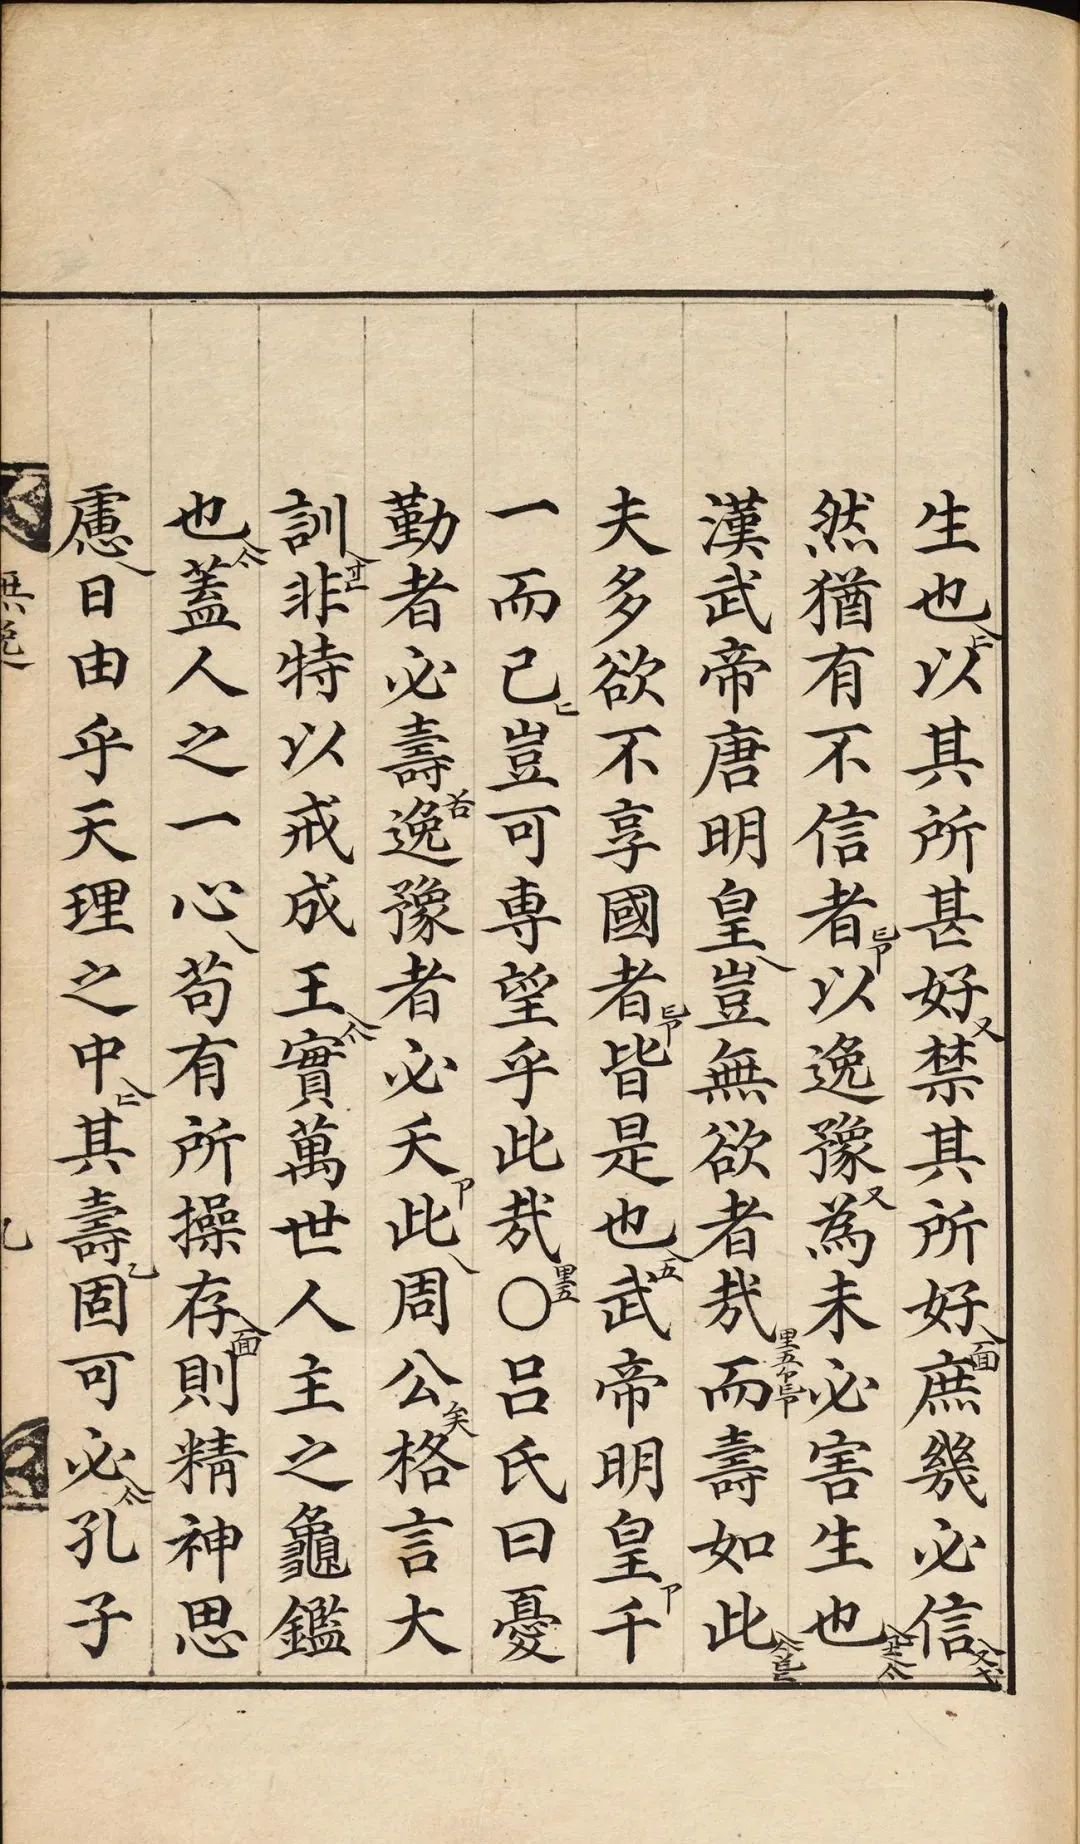 生也以其所甚好禁其所好庶幾必信
然猶有不信者以逸豫為未必害生也
漢武帝唐明皇豈無欲者哉而壽如此
夫多欲不享國者皆是也武帝明皇千
一而已豈可専望乎此哉〇呂氏曰憂
勤者必壽逸豫者必夭此周公格言大
訓非特以戒成王實萬世人主之龜鑑
也蓋人之一心苟有所操存則精神思
慮日由乎天理之中其壽固可必孔子
無逸